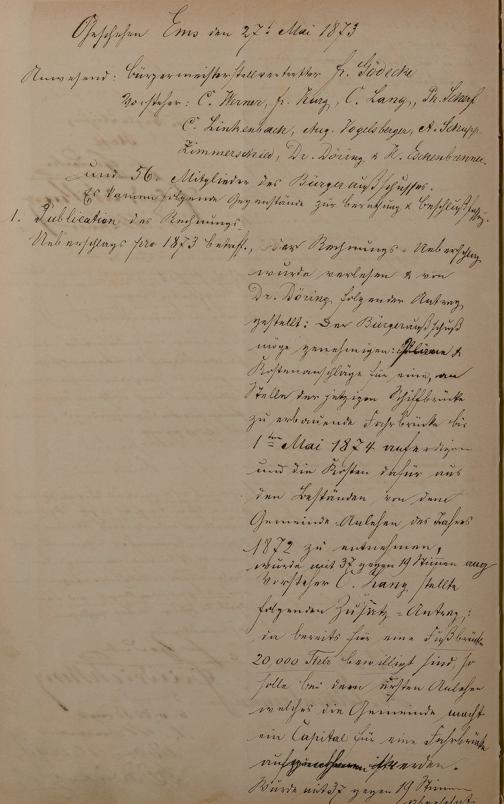 Geschehen Ems den 27t Mai 1873
Anwesend: Bürgermeisterstellvertretter Fr. Gödecke
Vorsteher: C. Werner, Fr. Kurz, C. Lang, Ph. Scharf
C. Linkenbach, Aug. Vogelsberger, A. Schupp
Zimmerschied, Dr. Döring & K. Eschenbrenner.
und 56. Mitglieder des Bürgerausschusses.
Es kamen folgende Gegenstände zur Berathung & Beschlußfassg.
1. Publication des Rechnungs-
Ueberschlags pro 1873 betreff.,
Der Rechnungs-Ueberschlag
wurde verlesen & von
Dr. Döring, folgender Antrag
gestellt: Der Bürgerausschuß
möge genehmigen: Pläne &
Kostenanschläge für eine, an
Stelle der jetzigen Schiffbrücke
zu erbauende Fahrbrücke bis
1ten Mai 1874 anfertigen
und die Kosten dafür aus
den Beständen von dem
Gemeinde-Anlehen des Jahres
1872 zu entnehmen,
wurde mit 37 gegen 19 Stimmen ang
Vorsteher C. Lang stellte
folgenden Zusatz-Antrag:
da bereits für eine Fußbrücke
20,000 Thlr bewilligt sind, so
solle bei dem ersten Anlehen
welches die Gemeinde macht
ein Capital für eine Fahrbrücke
werden.
Wurde mit 37 gegen 19 Stimmen